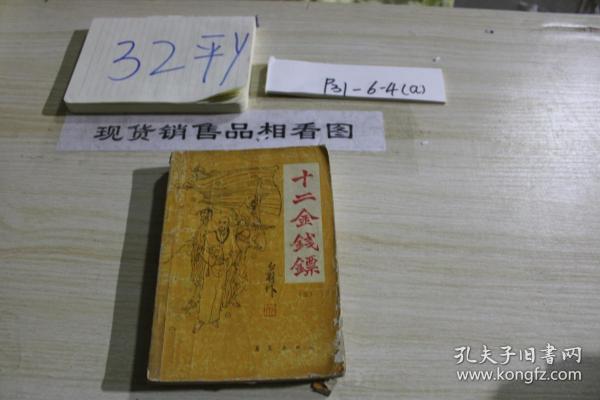 32平y
P31-6-4(a)
现货销售品相看图
十二金钱镖
孔夫子旧书网
www.kongfz.com